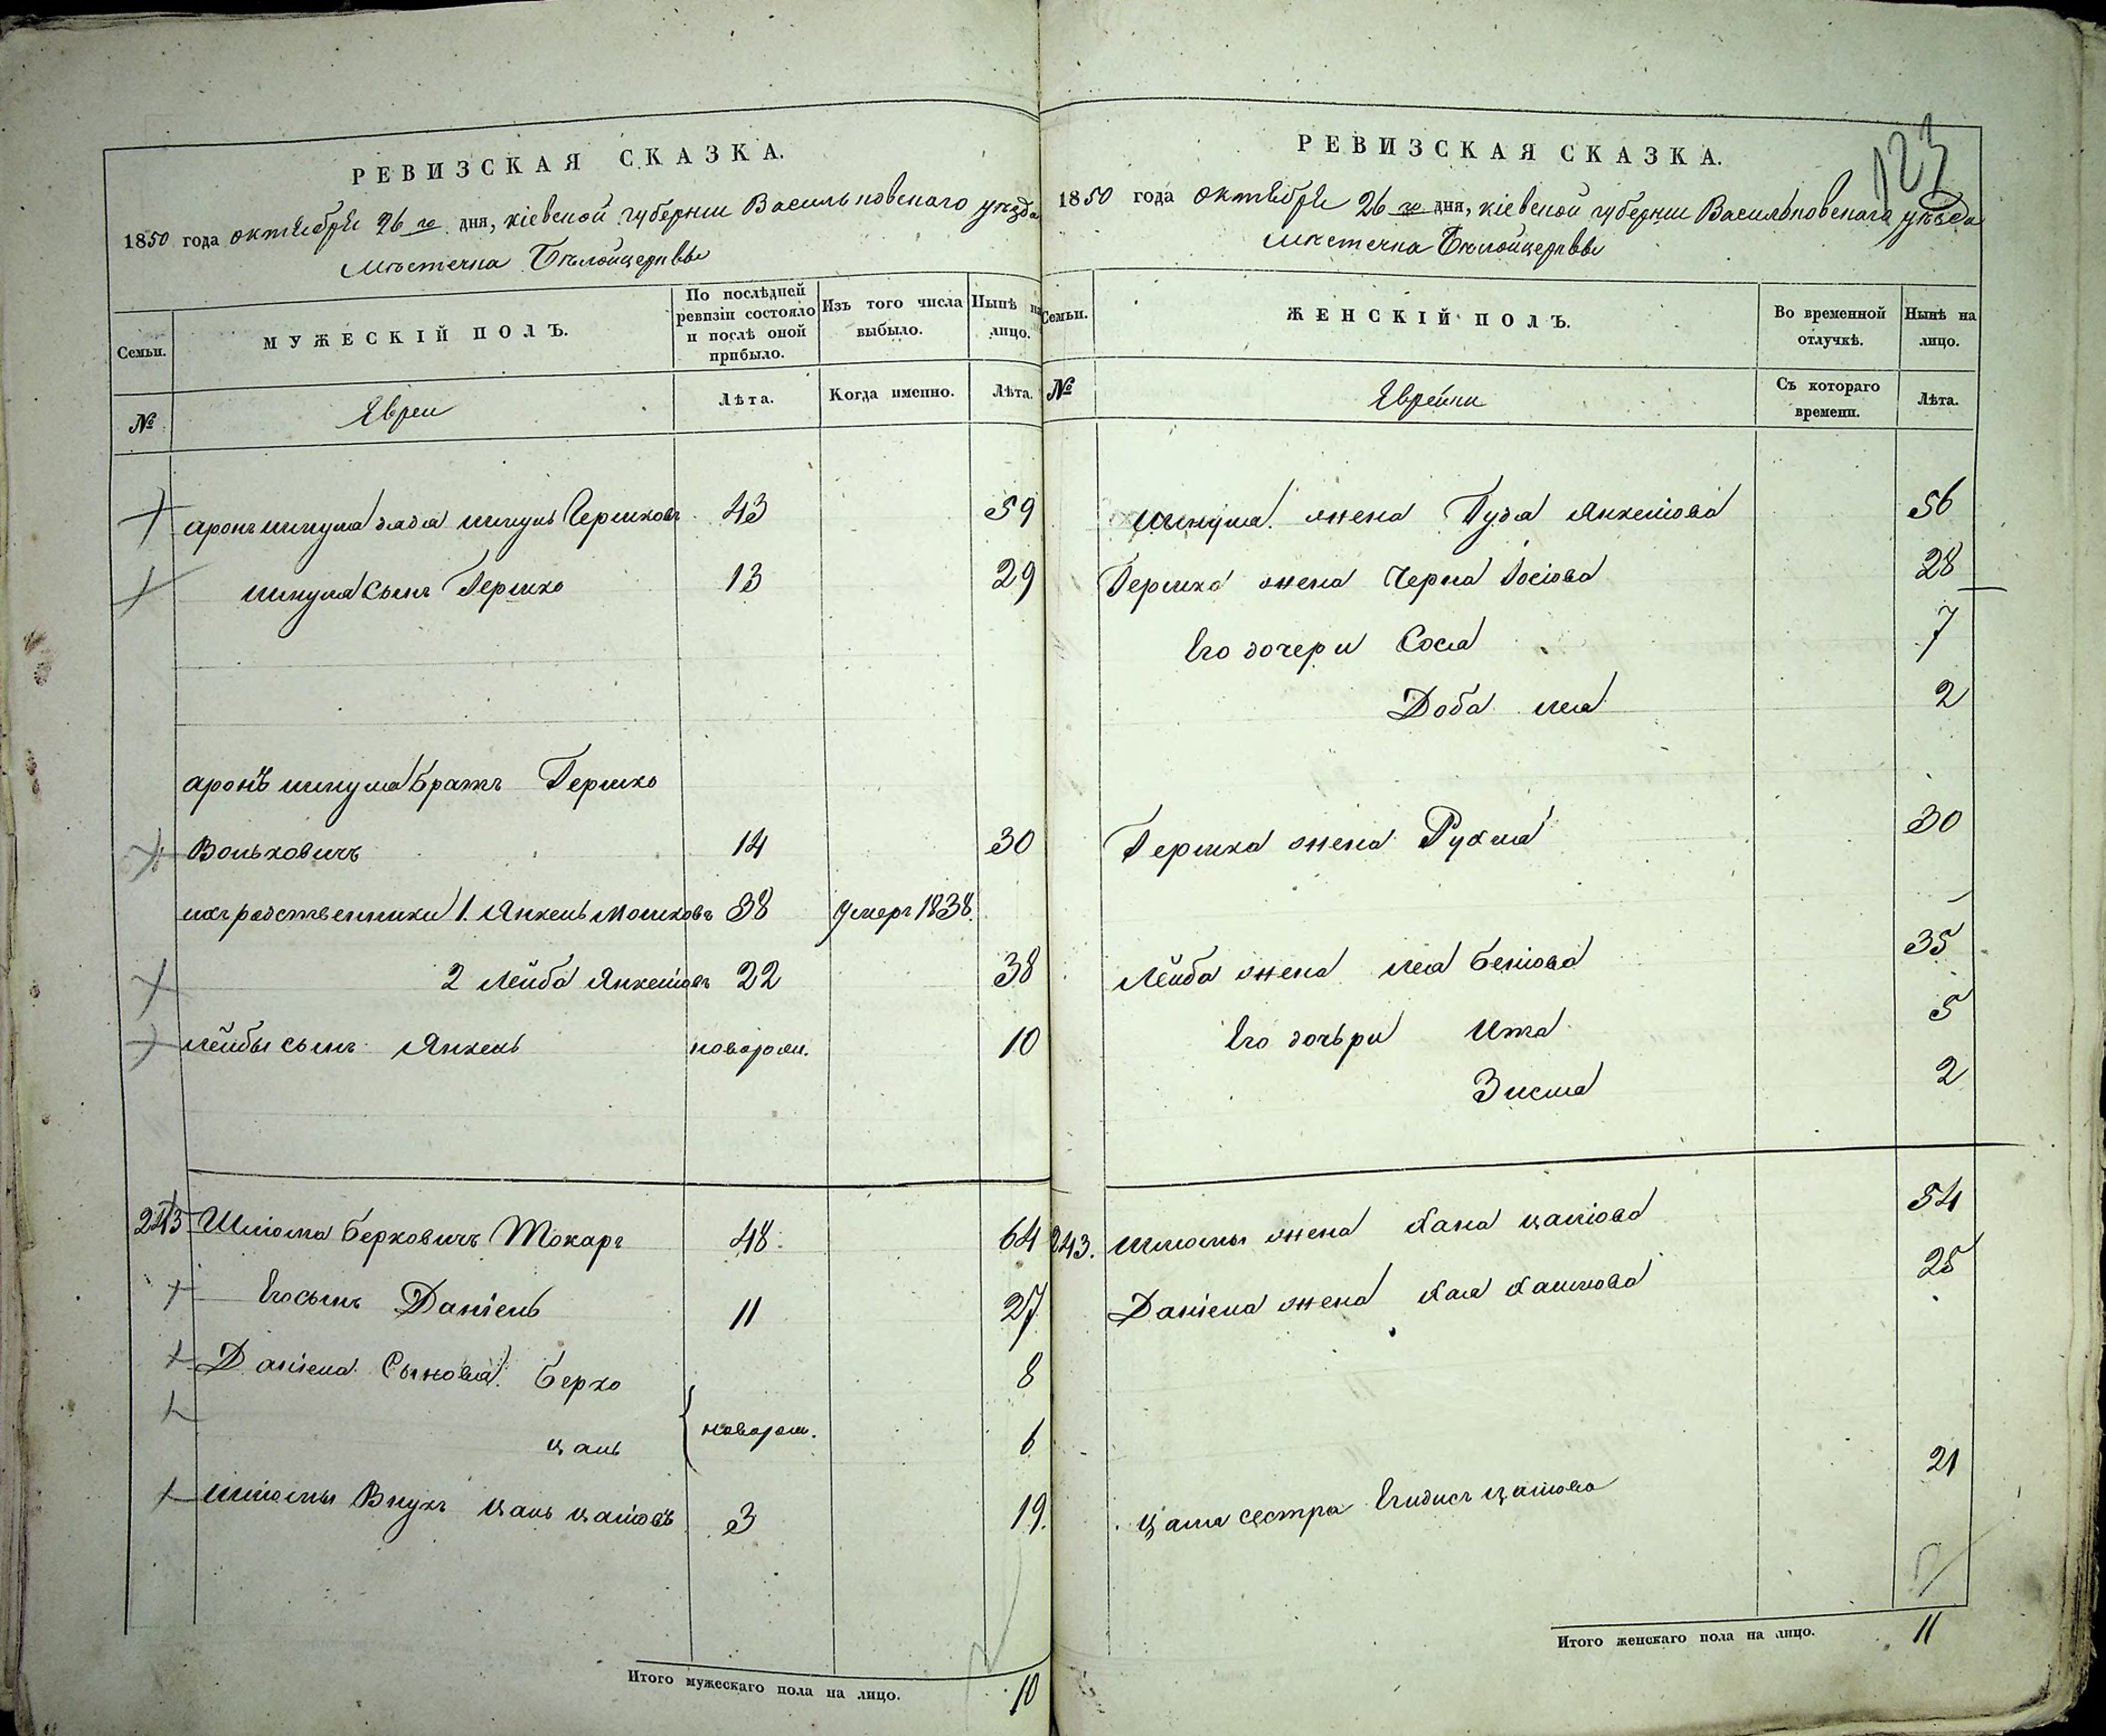 РЕВИЗСКАЯ СКАЗКА.
1850 года октября 26 го дня, кіевской губерніи Васильковскаго уѣзда
мѣстечка Бѣлойцеркви
Семьи.
МУЖЕСКІЙ ПОЛЪ.
По послѣдней ревизіи состояло и послѣ оной прибыло.
Изъ того числа выбыло.
Нынѣ на лицо.
№
Евреи
Лѣта.
Когда именно.
Лѣта.
аронъ шмула дядя шмуль Гершковъ 43 59
шмуля сынъ Гершко 13 29
аронъ шмула братъ Гершко
Вольковичъ 14 30
ихъ родственники 1. Янкель Мошковъ 38 умеръ 1838.
2 Лейба Янкеліовъ 22 38
лейбы сынъ Янкель поворожд. 10
243 Шліома Берковичъ Токарь 48. 64
Его сынъ Даніель 11 27
Даніеля Сыновья Берко 8
цаль новорож. 6
шліомы Внукъ цаль цаліовъ 3 19.
Итого мужескаго пола на лицо. 10
123
РЕВИЗСКАЯ СКАЗКА.
1850 года октября 26 го дня, кіевской губерніи Васильковскаго уѣзда
мѣстечка Бѣлойцеркви
Семьи.
ЖЕНСКІЙ ПОЛЪ.
Во временной отлучкѣ.
Нынѣ на лицо.
№
Еврейки
Съ котораго времени.
Лѣта.
шмуля жена Гудя Янкеліова 56
Гершка жена Черна Іосіова 28
Его дочери Сося 7
Доба лея 2
Гершка жена Рухля 30
Лейба жена лея беніова 35
Его дочьри Ита 5
Зисля 2
243. шліомы жена Хана цаліова 54
Даніела жена Хая Хаимова 25
цаля сестра цаліова 21
Итого женскаго пола на лицо. 11